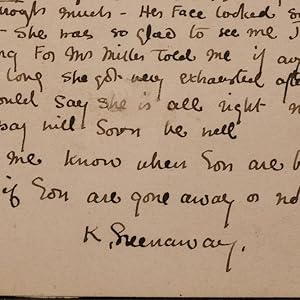 much - Her Face looked
She was so glad to see me I
For Mrs Miller Told me if
Long she got very exhausted after
Say she is all right
say will Soon be well
me Know when You are
if You are gone away or
K. Greenaway.